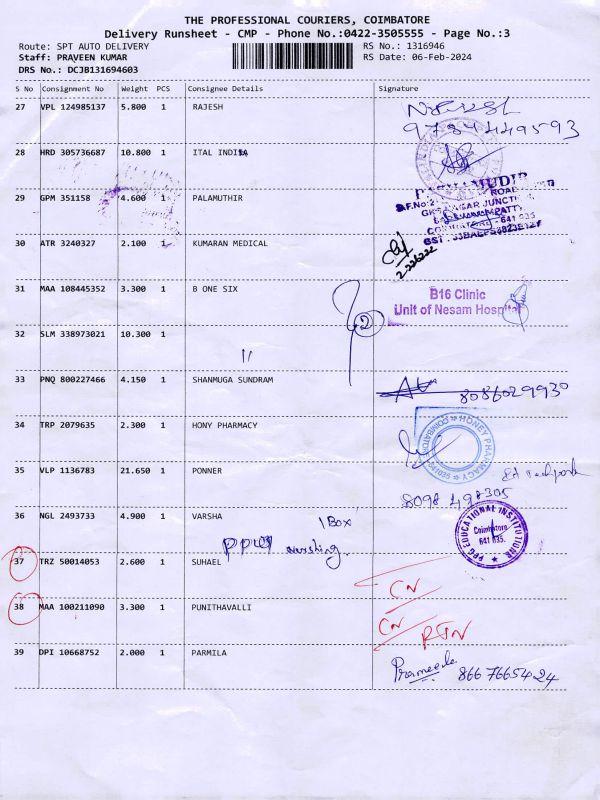 THE PROFESSIONAL COURIERS, COIMBATORE
Delivery Runsheet - CMP - Phone No.:0422-3505555 - Page No.:3
Route: SPT AUTO DELIVERY RS No.: 1316946
Staff: PRAVEEN KUMAR RS Date: 06-Feb-2024
DRS No.: DCJB131694603
S No Consignment No Weight PCS Consignee Details Signature
27 VPL 124985137 5.800 1 RAJESH
28 HRD 305736687 10.800 1 ITAL INDIA
29 GPM 351158 4.600 1 PALAMUTHIR
ROAD
30 ATR 3240327 2.100 1 KUMARAN MEDICAL
31 MAA 108445352 3.300 1 B ONE SIX
B16 Clinic
Unit of Nesam Hospital
2
32 SLM 338973021 10.300 1
11
33 PNQ 800227466 4.150 1 SHANMUGA SUNDRAM
8086029930
34 TRP 2079635 2.300 1 HONY PHARMACY
HONEY PHARMACY COIMBATORE 641035
35 VLP 1136783 21.650 1 PONNER
8098 498305
36 NGL 2493733 4.900 1 VARSHA
1 Box
nursing
PPG EDUCATIONAL INSTITUTIONS
Coimbatore
641 035.
37 TRZ 50014053 2.600 1 SUHAEL
CN
38 MAA 100211090 3.300 1 PUNITHAVALLI
CN RTN
39 DPI 10668752 2.000 1 PARMILA
8667665424